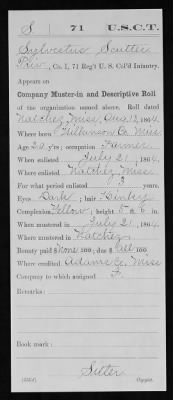 S | 71 | U.S.C.T.
Sylvester Scutter
Priv, Co. I, 71 Reg't U. S. Col'd Infantry.
Appears on
Company Muster-in and Descriptive Roll
of the organization named above. Roll dated
Natchez Miss Aug 13, 1864.
Where born Wilkinson Co Miss
Age 20 y'rs; occupation Farmer
When enlisted July 21, 1864.
Where enlisted Natchez Miss
For what period enlisted 3 years.
Eyes Dark; hair Kinkey
Complexion Yellow; height 5 ft. 6 in.
When mustered in July 21, 1864
Where mustered in Natchez
Bounty paid $ None 100; due $ all 100
Where credited Adams Co, Miss
Company to which assigned
Remarks:
Book mark:
Sitter
Copyist.